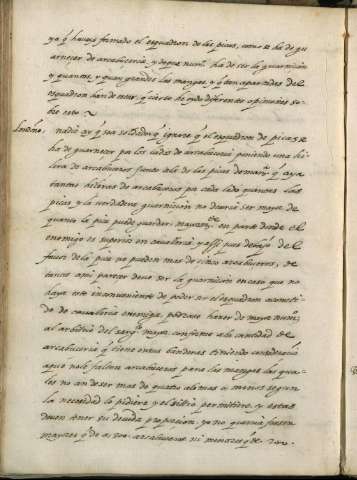 ya q̃ haueis formado el esquadron de las picas, como se ha de gu
arnecer de arcabuceria, y de que num.º ha de ser la guarnicion
y quantas, y quan grandes las mangas, y q̃ tan apartadas del
esquadron han de estar, q̃ cierto he oydo diferentes opiniones so
bre esto
nadie ay q̃ sea soldado q̃ ignore q̃ el esquadron de picas se
ha de guarnecer por los lados de arcabuceria poniendo una hi
lera de arcabuceros junto a la de las picas de man.ª q̃ aya
tantas hileras de arcabuceros por cada lado quantas de las
picas y la verdadera guarnicion no deuria ser mayor de
quanto la pica puede guardar, mayorm.te en parte donde el
enemigo es superior en caualleria y assi pues debajo del
de la pica no pueden mas de cinco arcabuceros, de
tantos a mi parecer deue ser la guarnicion en caso que no
haya este inconueniente de poder ser el esquadron acometi
do de caualleria enemiga podrase hacer de mayor num.º
al arbitrio del sarg.to mayor conforme a la cantidad de
arcabuceria q̃ tiene en sus banderas teniendo consideracion
a que no le falten arcabuceros para las mangas las qua
les no an de ser mas de quatro o menos segun
la necesidad lo pidiere y el sitio permitiere, y estas
deuen tener su deuida proporcion yo no querria fuesen
mayores q̃ de a 300 arcabuceros ni menores q̃ de 200.